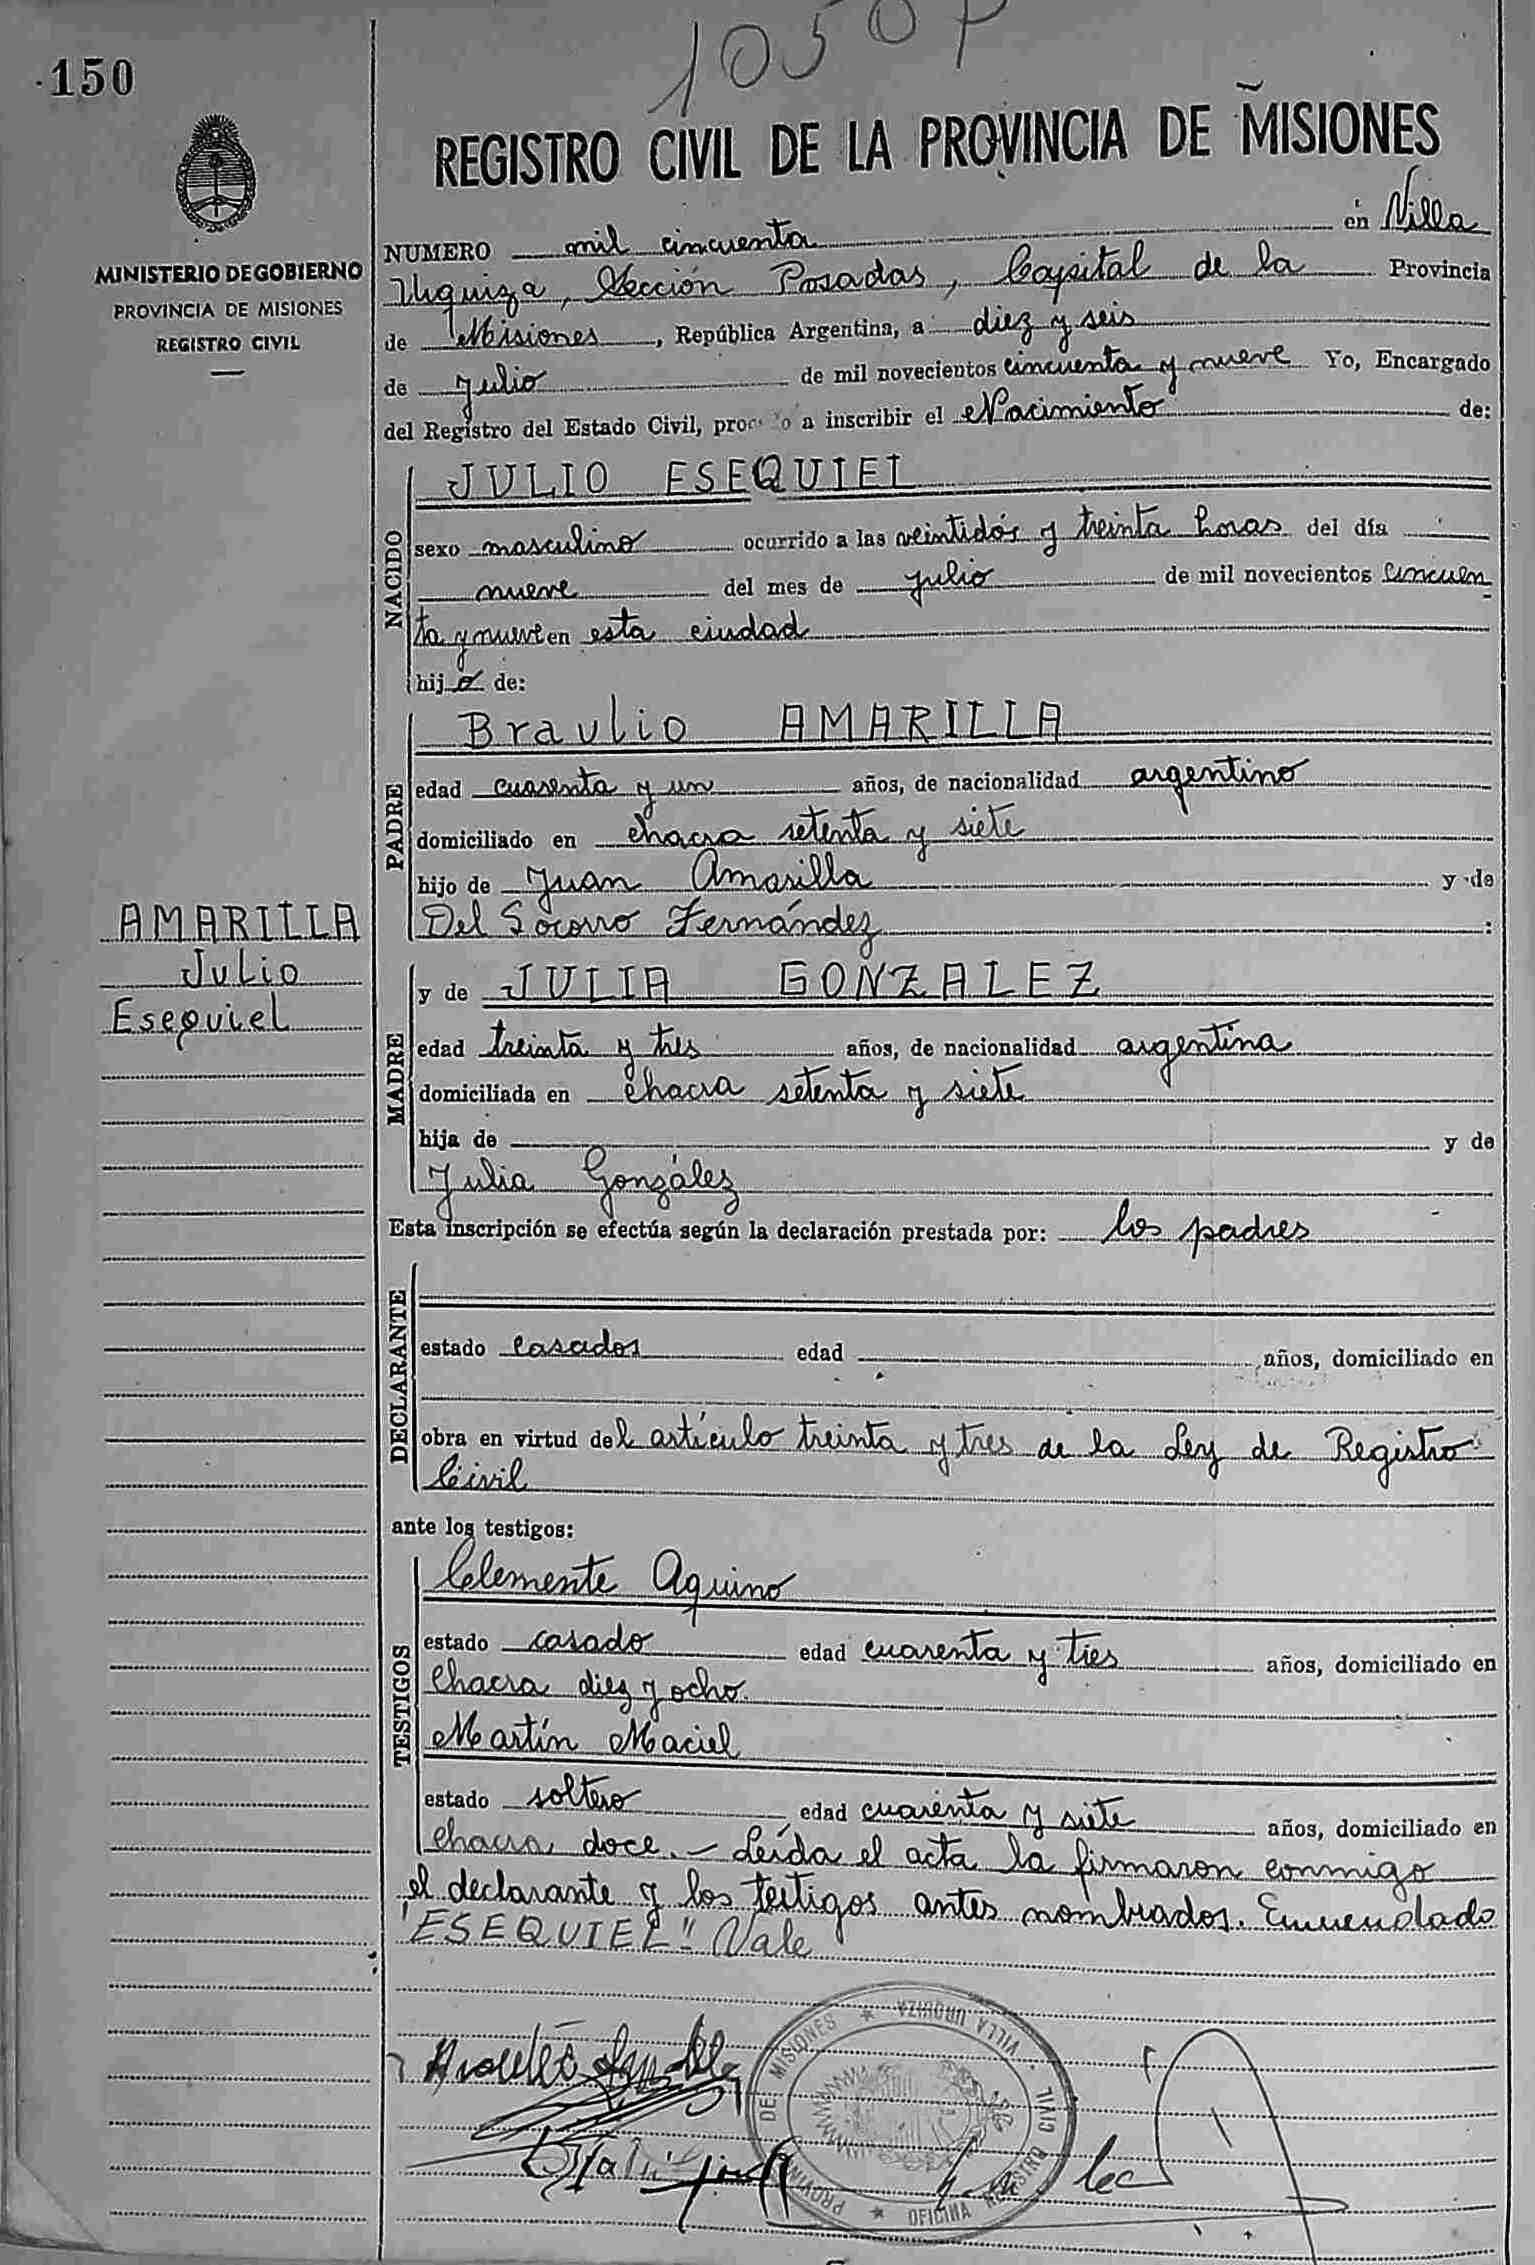 1050 P
150
REGISTRO CIVIL DE LA PROVINCIA DE MISIONES
MINISTERIO DE GOBIERNO
PROVINCIA DE MISIONES
REGISTRO CIVIL
NUMERO mil cincuenta en Villa
Urquiza, Sección Posadas, Capital de la Provincia
de Misiones, República Argentina, a diez y seis
de Julio de mil novecientos cincuenta y nueve Yo, Encargado
del Registro del Estado Civil, proc o a inscribir el Nacimiento de:
NACIDO
JULIO ESEQUIEL
sexo masculino ocurrido a las veintidós y treinta horas del día
nueve del mes de julio de mil novecientos cincuen
ta y nueve en esta ciudad
hijo de:
PADRE
Braulio AMARILLA
edad cuarenta y un años, de nacionalidad argentino
domiciliado en chacra setenta y siete
hijo de Juan Amarilla y de
Del Socorro Fernández :
AMARILLA
Julio
Esequiel
MADRE
y de JULIA GONZALEZ
edad treinta y tres años, de nacionalidad argentina
domiciliada en chacra setenta y siete
hija de y de
Julia González
Esta inscripción se efectúa según la declaración prestada por: los padres
DECLARANTE
estado casados edad años, domiciliado en
obra en virtud del artículo treinta y tres de la Ley de Registro
Civil
ante los testigos:
TESTIGOS
Clemente Aquino
estado casado edad cuarenta y tres años, domiciliado en
chacra diez y ocho.
Martín Maciel
estado soltero edad cuarenta y siete años, domiciliado en
chacra doce.- Leída el acta la firmaron conmigo
el declarante y los testigos antes nombrados. Enmendado
"ESEQUIEL" Vale
PROVINCIA DE MISIONES * VILLA URQUIZA
* OFICINA REGISTRO CIVIL